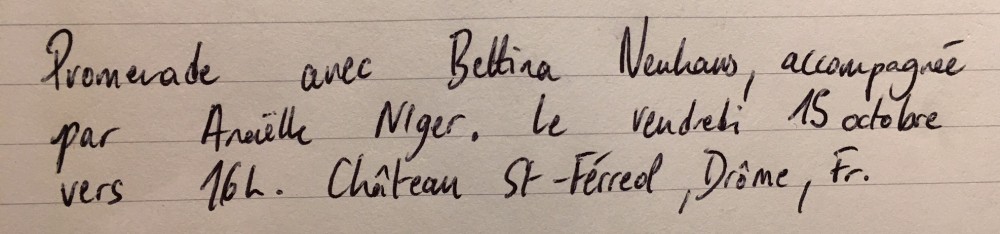 Promenade avec Bettina Neuhaus, accompagnée
par Anaëlle Niger. Le vendredi 15 octobre
vers 16h. Château St-Férreol, Drôme, Fr.